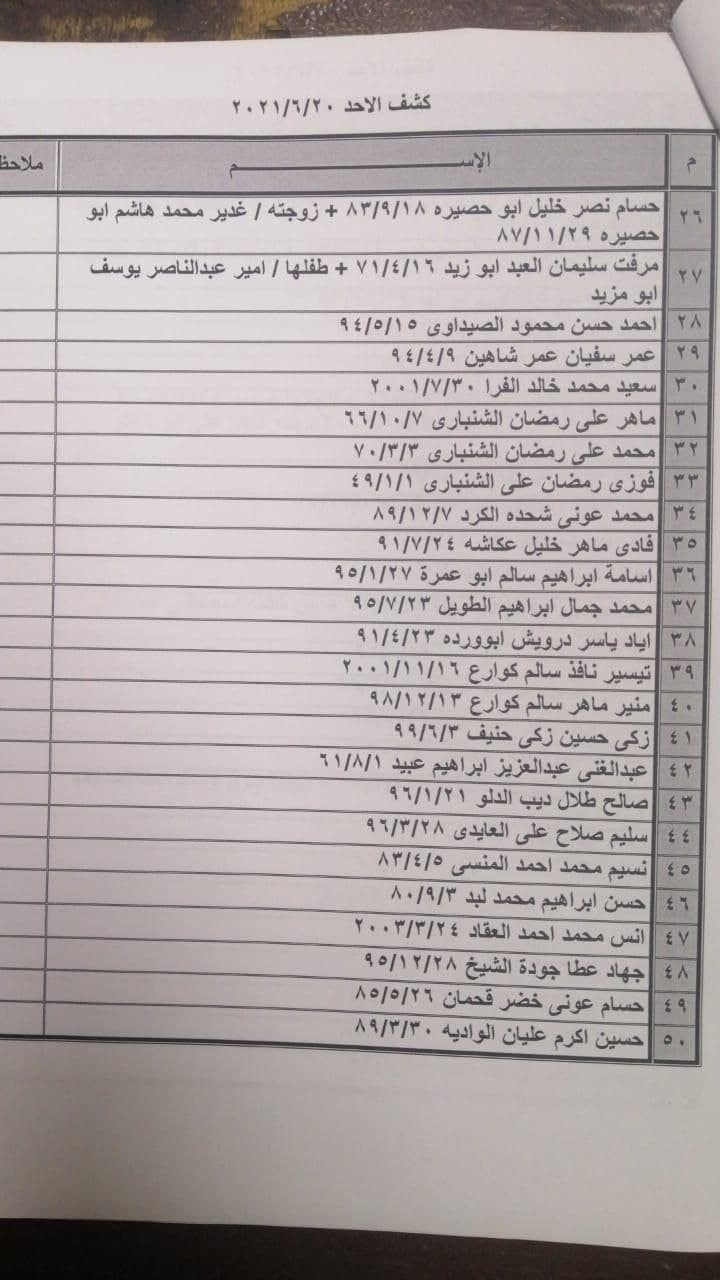 كشف الاحد ٢٠٢١/٦/٢٠
م الإســـــم ملاحظ
٢٦ حسام نصر خليل ابو حصيره ٨٣/٩/١٨ + زوجته / غدير محمد هاشم ابو
حصيره ٨٧/١١/٢٩
٢٧ مرفت سليمان العبد ابو زيد ٧١/٤/١٦ + طفلها / امير عبدالناصر يوسف
ابو مزيد
٢٨ احمد حسن محمود الصيداوى ٩٤/٥/١٥
٢٩ عمر سفيان عمر شاهين ٩٤/٤/٩
٣٠ سعيد محمد خالد الفرا ٢٠٠١/٧/٣٠
٣١ ماهر على رمضان الشنبارى ٦٦/١٠/٧
٣٢ محمد على رمضان الشنبارى ٧٠/٣/٣
٣٣ فوزى رمضان على الشنبارى ٤٩/١/١
٣٤ محمد عونى شحده الكرد ٨٩/١٢/٧
٣٥ فادى ماهر خليل عكاشه ٩١/٧/٢٤
٣٦ اسامة ابراهيم سالم ابو عمرة ٩٥/١/٢٧
٣٧ محمد جمال ابراهيم الطويل ٩٥/٧/٢٣
٣٨ اياد ياسر درويش ابوورده ٩١/٤/٢٣
٣٩ تيسير نافذ سالم كوارع ٢٠٠١/١١/١٦
٤٠ منير ماهر سالم كوارع ٩٨/١٢/١٣
٤١ زكى حسين زكى حنيف ٩٩/٦/٣
٤٢ عبدالغنى عبدالعزيز ابراهيم عبيد ٦١/٨/١
٤٣ صالح طلال ديب الدلو ٩٦/١/٢١
٤٤ سليم صلاح على العايدى ٩٦/٣/٢٨
٤٥ نسيم محمد احمد المنسى ٨٣/٤/٥
٤٦ حسن ابراهيم محمد لبد ٨٠/٩/٣
٤٧ انس محمد احمد العقاد ٢٠٠٣/٣/٢٤
٤٨ جهاد عطا جودة الشيخ ٩٥/١٢/٢٨
٤٩ حسام عونى خضر قحمان ٨٥/٥/٢٦
٥٠ حسين اكرم عليان الواديه ٨٩/٣/٣٠